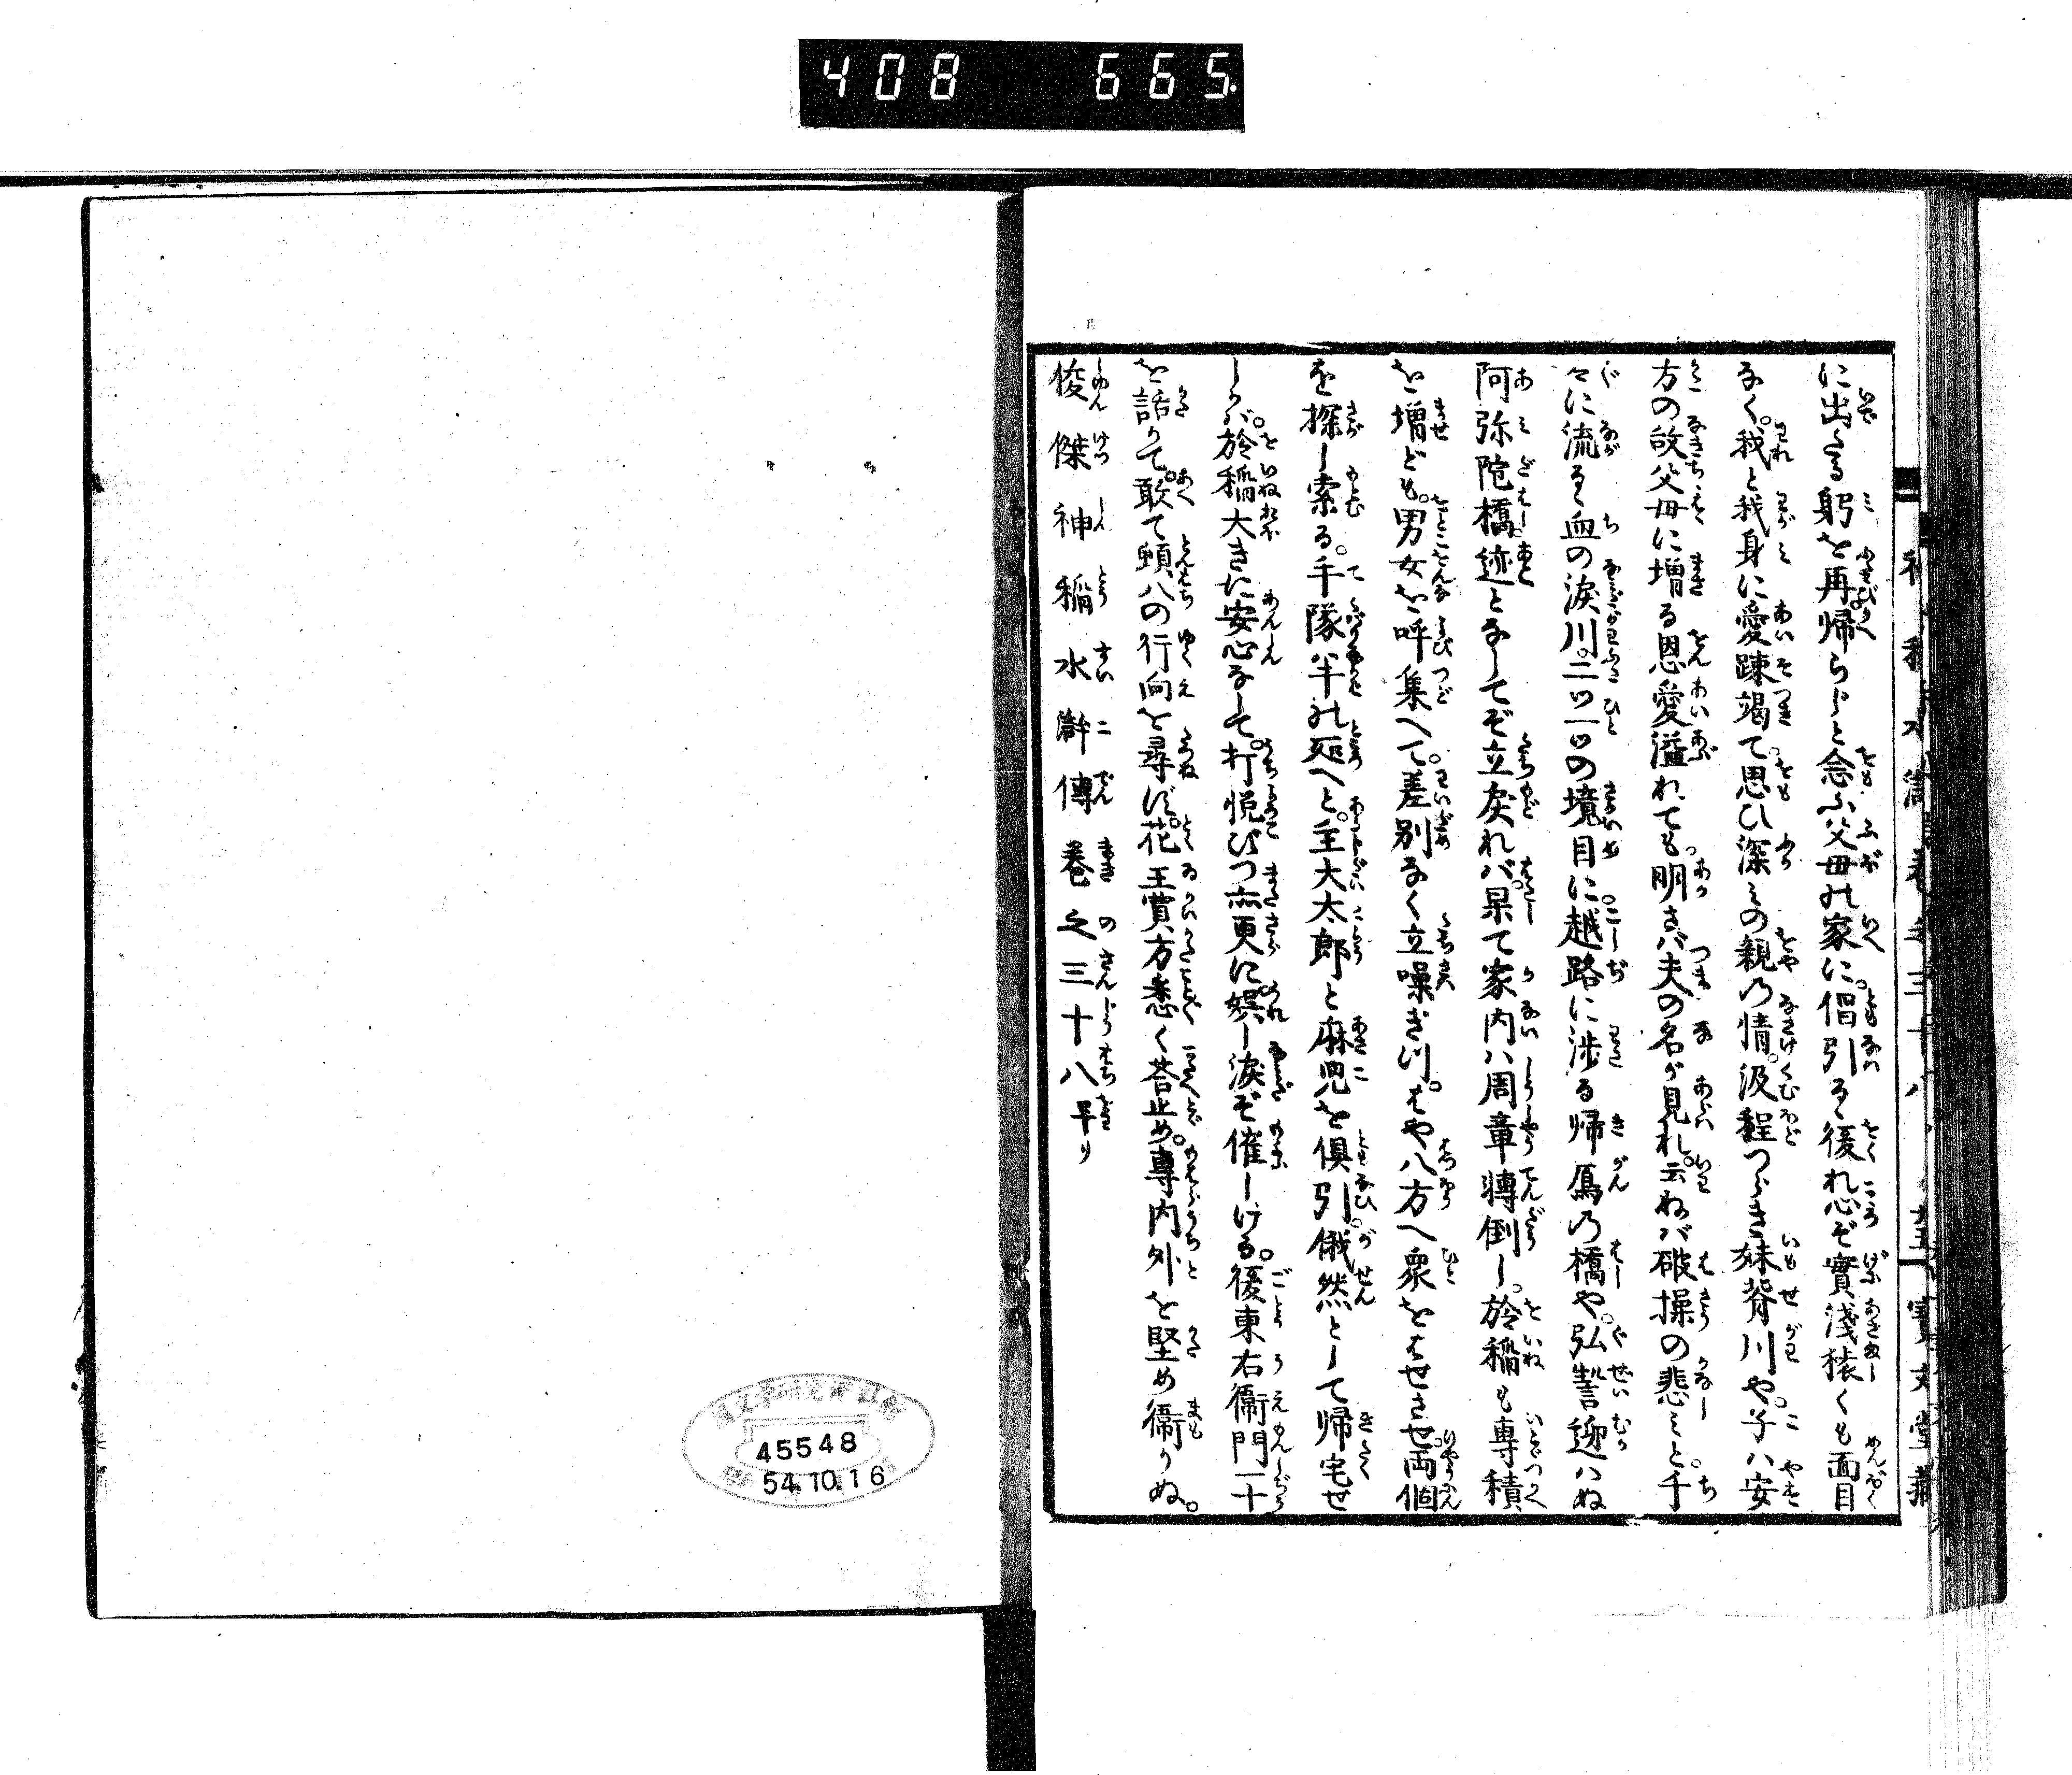 408 665
に出たる躬を再帰らじと念ふ父母の家に。倡引るゝ後れ心ぞ實淺猿くも面目
なく。我と我身に愛踈竭て。思ひ深みの親の情。汲程つらき妹脊川や。子ハ安
方の故父母に増る恩愛溢れても。明さバ夫の名が見れ。云ねバ破操の悲みと。千
々に流るゝ血の涙川。二ツ一ツの境目に。越路に渉る帰鴈の橋や。弘誓迎ハぬ
阿弥陀橋迹となしてぞ立戻れバ。果て家内ハ周章轉倒し。於稲も専積
を増ども。男女を呼集へて。差別なく立噪ぎつ。はや八方へ衆をはせさせ。両個
を探し索る。手隊ハ半の処へと。主大太郎と麻児を倶引。俄然として帰宅せ
しかバ。於稲大きに安心なして。打悦びつ亦更に。娯し涙ぞ催しける。後東右衞門一十
を話りて。敢て蜾八の行向を尋ず。花王賣方悉く荅止め。専内外を堅め衞りぬ。
俊傑神稲水滸傳巻之三十八畢り
45548
54.10.16